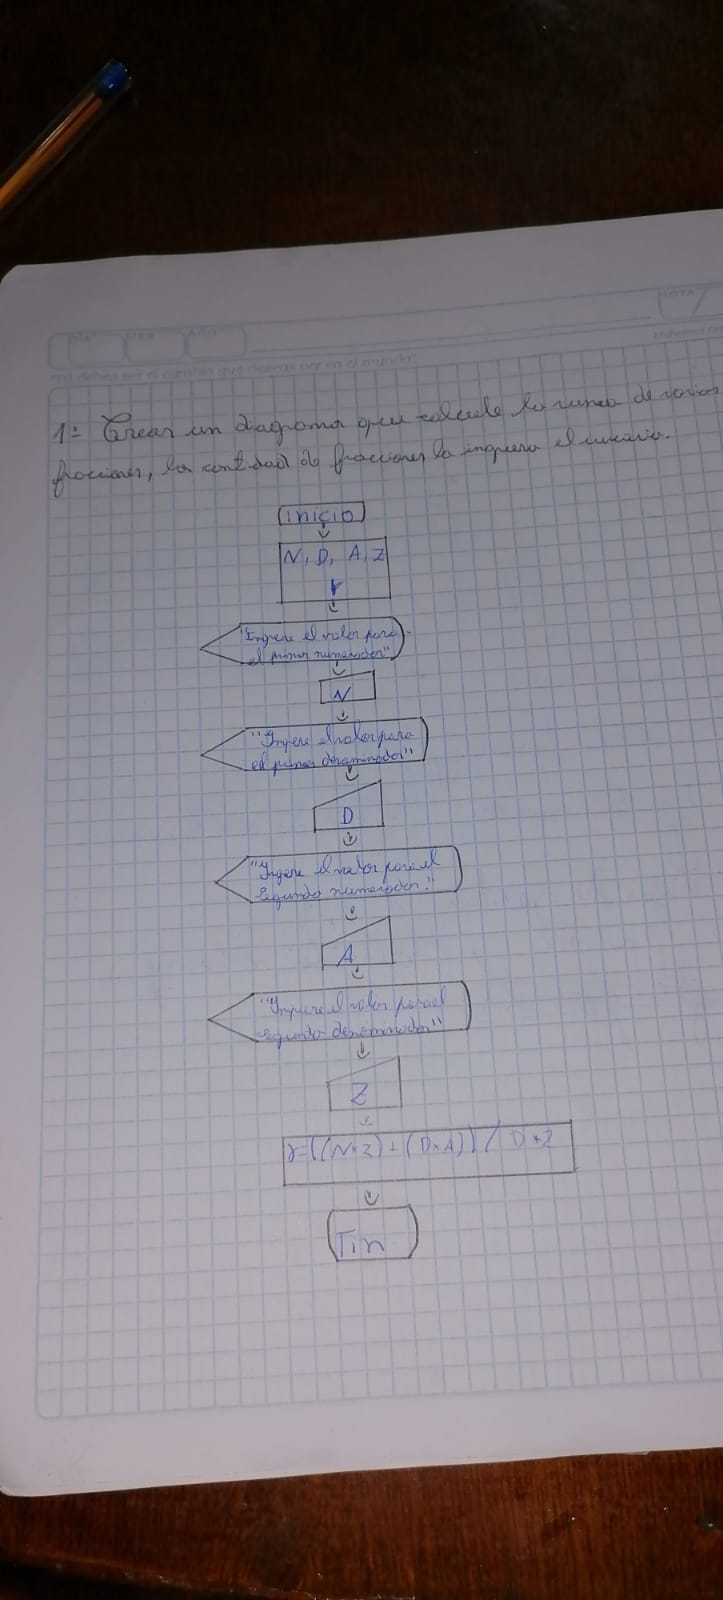 DÍA MES AÑO NOTA
"Tú debes ser el cambio que deseas ver en el mundo".
1º Crear un diagrama que calcule la suma de varias
fracciones, la cantidad de fracciones la ingresa el usuario.
inicio
N, D, A, Z
r
"Ingrese el valor para
el primer numerador"
N
"Ingrese el valor para
el primer denominador"
D
"Ingrese el valor para el
segundo numerador."
A
"Ingrese el valor para el
segundo denominador"
Z
r=((N*Z)+(D*A))/ D*Z
Fin